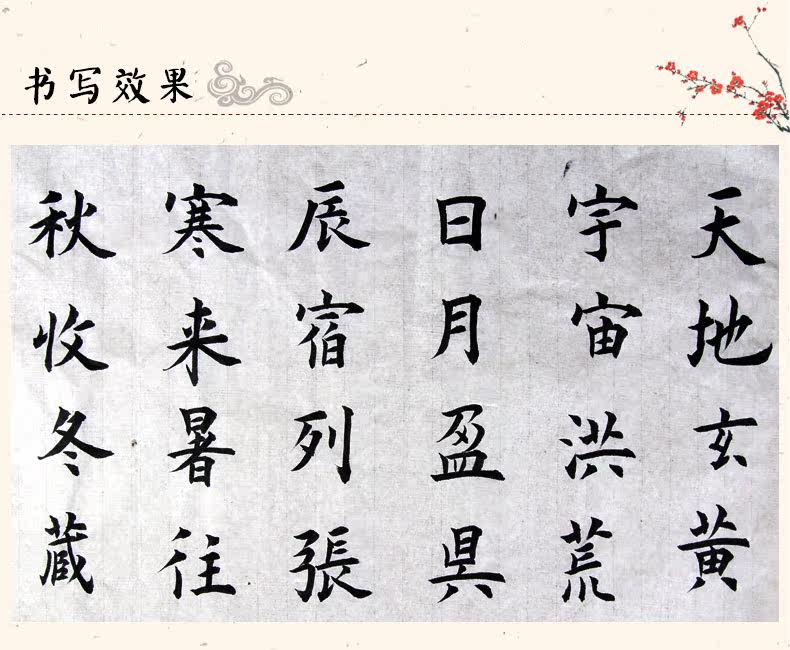 书写效果
天地玄黄
宇宙洪荒
日月盈昃
辰宿列張
寒来暑往
秋收冬蔵